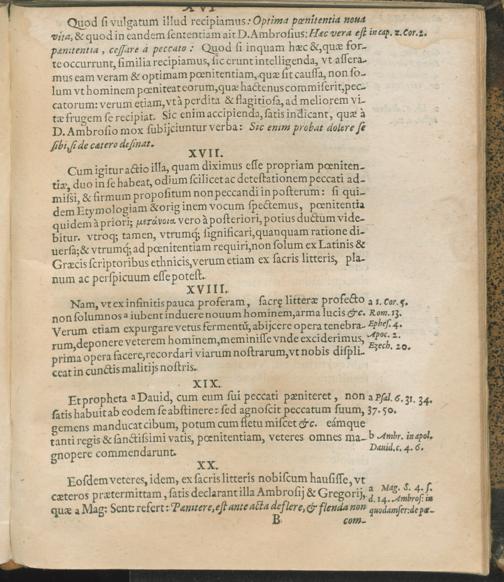 XVI
Quod si vulgatum illud recipiamus: Optima pœnitentia noua
vita, & quod in eandem sententiam ait D. Ambrosius: Hæc vera est in cap. 2. Cor. 2.
pœnitentia, cessare à peccato: Quod si inquam hæc &, quæ for-
te occurrunt, similia recipiamus, sic erunt intelligenda, vt assera-
mus eam veram & optimam pœnitentiam, quæ sit caussa, non so-
lum vt hominem pœniteat eorum, quæ hactenus commiserit, pec-
catorum: verum etiam, vt à perdita & flagitiosa, ad meliorem vi-
tæ frugem se recipiat. Sic enim accipienda, satis indicant, quæ à
D. Ambrosio mox subijciuntur verba: Sic enim probat dolere se
sibi, si de cætero desinat.
XVII.
Cum igitur actio illa, quam diximus esse propriam pœniten-
tiæ, duo in se habeat, odium scilicet ac detestationem peccati ad-
missi, & firmum propositum non peccandi in posterum: si qui-
dem Etymologiam & originem vocum spectemus, pœnitentia
quidem à priori; μετάνοια vero à posteriori, potius ductum vide-
bitur. vtroq; tamen, vtrumq; significari, quanquam ratione di-
uersa; & vtrumq; ad pœnitentiam requiri, non solum ex Latinis &
Græcis scriptoribus ethnicis, verum etiam ex sacris litteris, pla-
num ac perspicuum esse potest.
XVIII.
Nam, vt ex infinitis pauca proferam, sacrę litteræ profecto a 1. Cor. 5.
non solum nos a iubent induere nouum hominem, arma lucis &c. Rom. 13.
Verum etiam expurgare vetus fermentũ, abijcere opera tenebra- Ephes. 4.
rum, deponere veterem hominem, meminisse vnde exciderimus, Apoc. 2.
prima opera facere, recordari viarum nostrarum, vt nobis displi- Ezech. 20.
ceat in cunctis malitijs nostris.
XIX.
Et propheta a Dauid, cum eum sui peccati pæniteret, non a Psal. 6. 31. 34.
satis habuit ab eodem se abstinere: sed agnoscit peccatum suum, 37. 50.
gemens manducat cibum, potum cum fletu miscet &c. eámque
tanti regis & sanctissimi vatis, pœnitentiam, veteres omnes ma- b Ambr. in apol.
gnopere commendarunt. Dauid. c. 4. 6.
XX.
Eosdem veteres, idem, ex sacris litteris nobiscum hausisse, vt
cæteros prætermittam, satis declarant illa Ambrosij & Gregorij, a Mag. S. 4. s.
quæ a Mag: Sent: refert: Pœnitere, est ante acta deflere, & flenda non d. 14. Ambros: in
quodam ser: de pœ-
B com-